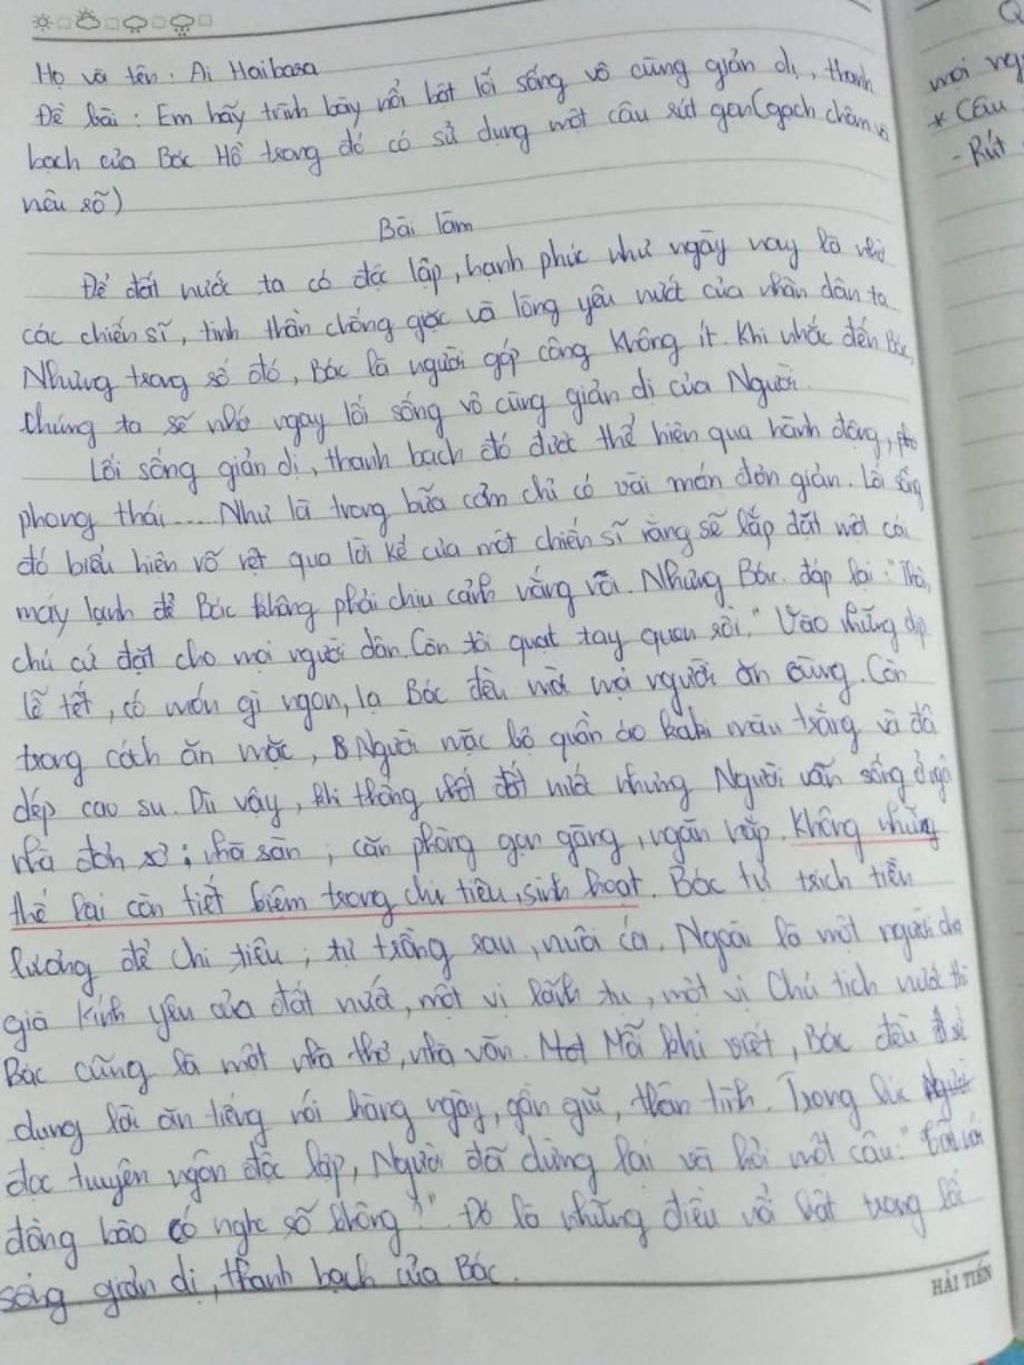 Họ và tên: Ai Haibara
Đề bài: Em hãy trình bày nổi bật lối sống vô cùng giản dị, thanh
bạch của Bác Hồ trong đó có sử dụng một câu rút gọn (gạch chân và
nêu rõ)
Bài làm
Để đất nước ta có độc lập, hạnh phúc như ngày nay là nhờ
các chiến sĩ, tinh thần chống giặc và lòng yêu nước của nhân dân ta.
Nhưng trong số đó, Bác là người góp công không ít. Khi nhắc đến Bác,
chúng ta sẽ nhớ ngay lối sống vô cùng giản dị của Người.
Lối sống giản dị, thanh bạch đó được thể hiện qua hành động,
phong thái.... Như là trong bữa cơm chỉ có vài món đơn giản. Lối sống
đó biểu hiện rõ rệt qua lời kể của một chiến sĩ rằng sẽ lắp đặt một cái
máy lạnh để Bác không phải chịu cảnh nóng nữa. Nhưng Bác đáp lại: "Thôi,
chú cứ đặt cho mọi người dân. Còn tôi quạt tay quen rồi." Vào những dịp
lễ tết, có món gì ngon, lạ Bác đều mời mọi người ăn cùng. Còn
trong cách ăn mặc, Người mặc bộ quần áo kaki màu trắng và đôi
dép cao su. Dù vậy, khi thống nhất đất nước nhưng Người vẫn sống ở ngôi
nhà đơn sơ; nhà sàn; căn phòng gọn gàng, ngăn nắp. Không những
thế lại còn tiết kiệm trong chi tiêu, sinh hoạt. Bác tự trích tiền
lương để chi tiêu; tự trồng rau, nuôi cá. Ngoài là một người cha
già kính yêu của đất nước, một vị lãnh tụ, một vị Chủ tịch nước thì
Bác cũng là một nhà thơ, nhà văn. Mỗi khi viết, Bác đều sử
dụng lời ăn tiếng nói hàng ngày, gần gũi, thân tình. Trong lúc
đọc tuyên ngôn độc lập, Người đã dừng lại và hỏi một câu: "Tôi nói
đồng bào có nghe rõ không?". Đó là những điều nổi bật trong lối
sống giản dị, thanh bạch của Bác.
HẢI TIẾN
mọi
* Câu
- Rút